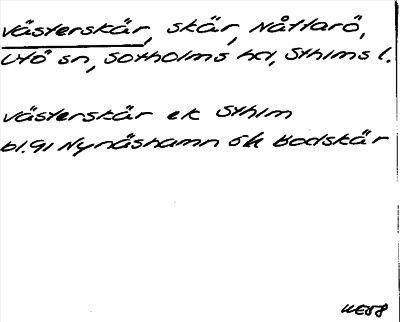 Västerskär, skär, Nåttarö,
Utö sn, Sotholms hd, Sthlms l.
Västerskär ek Sthlm
bl.91 Nynäshamn ök Bodskär